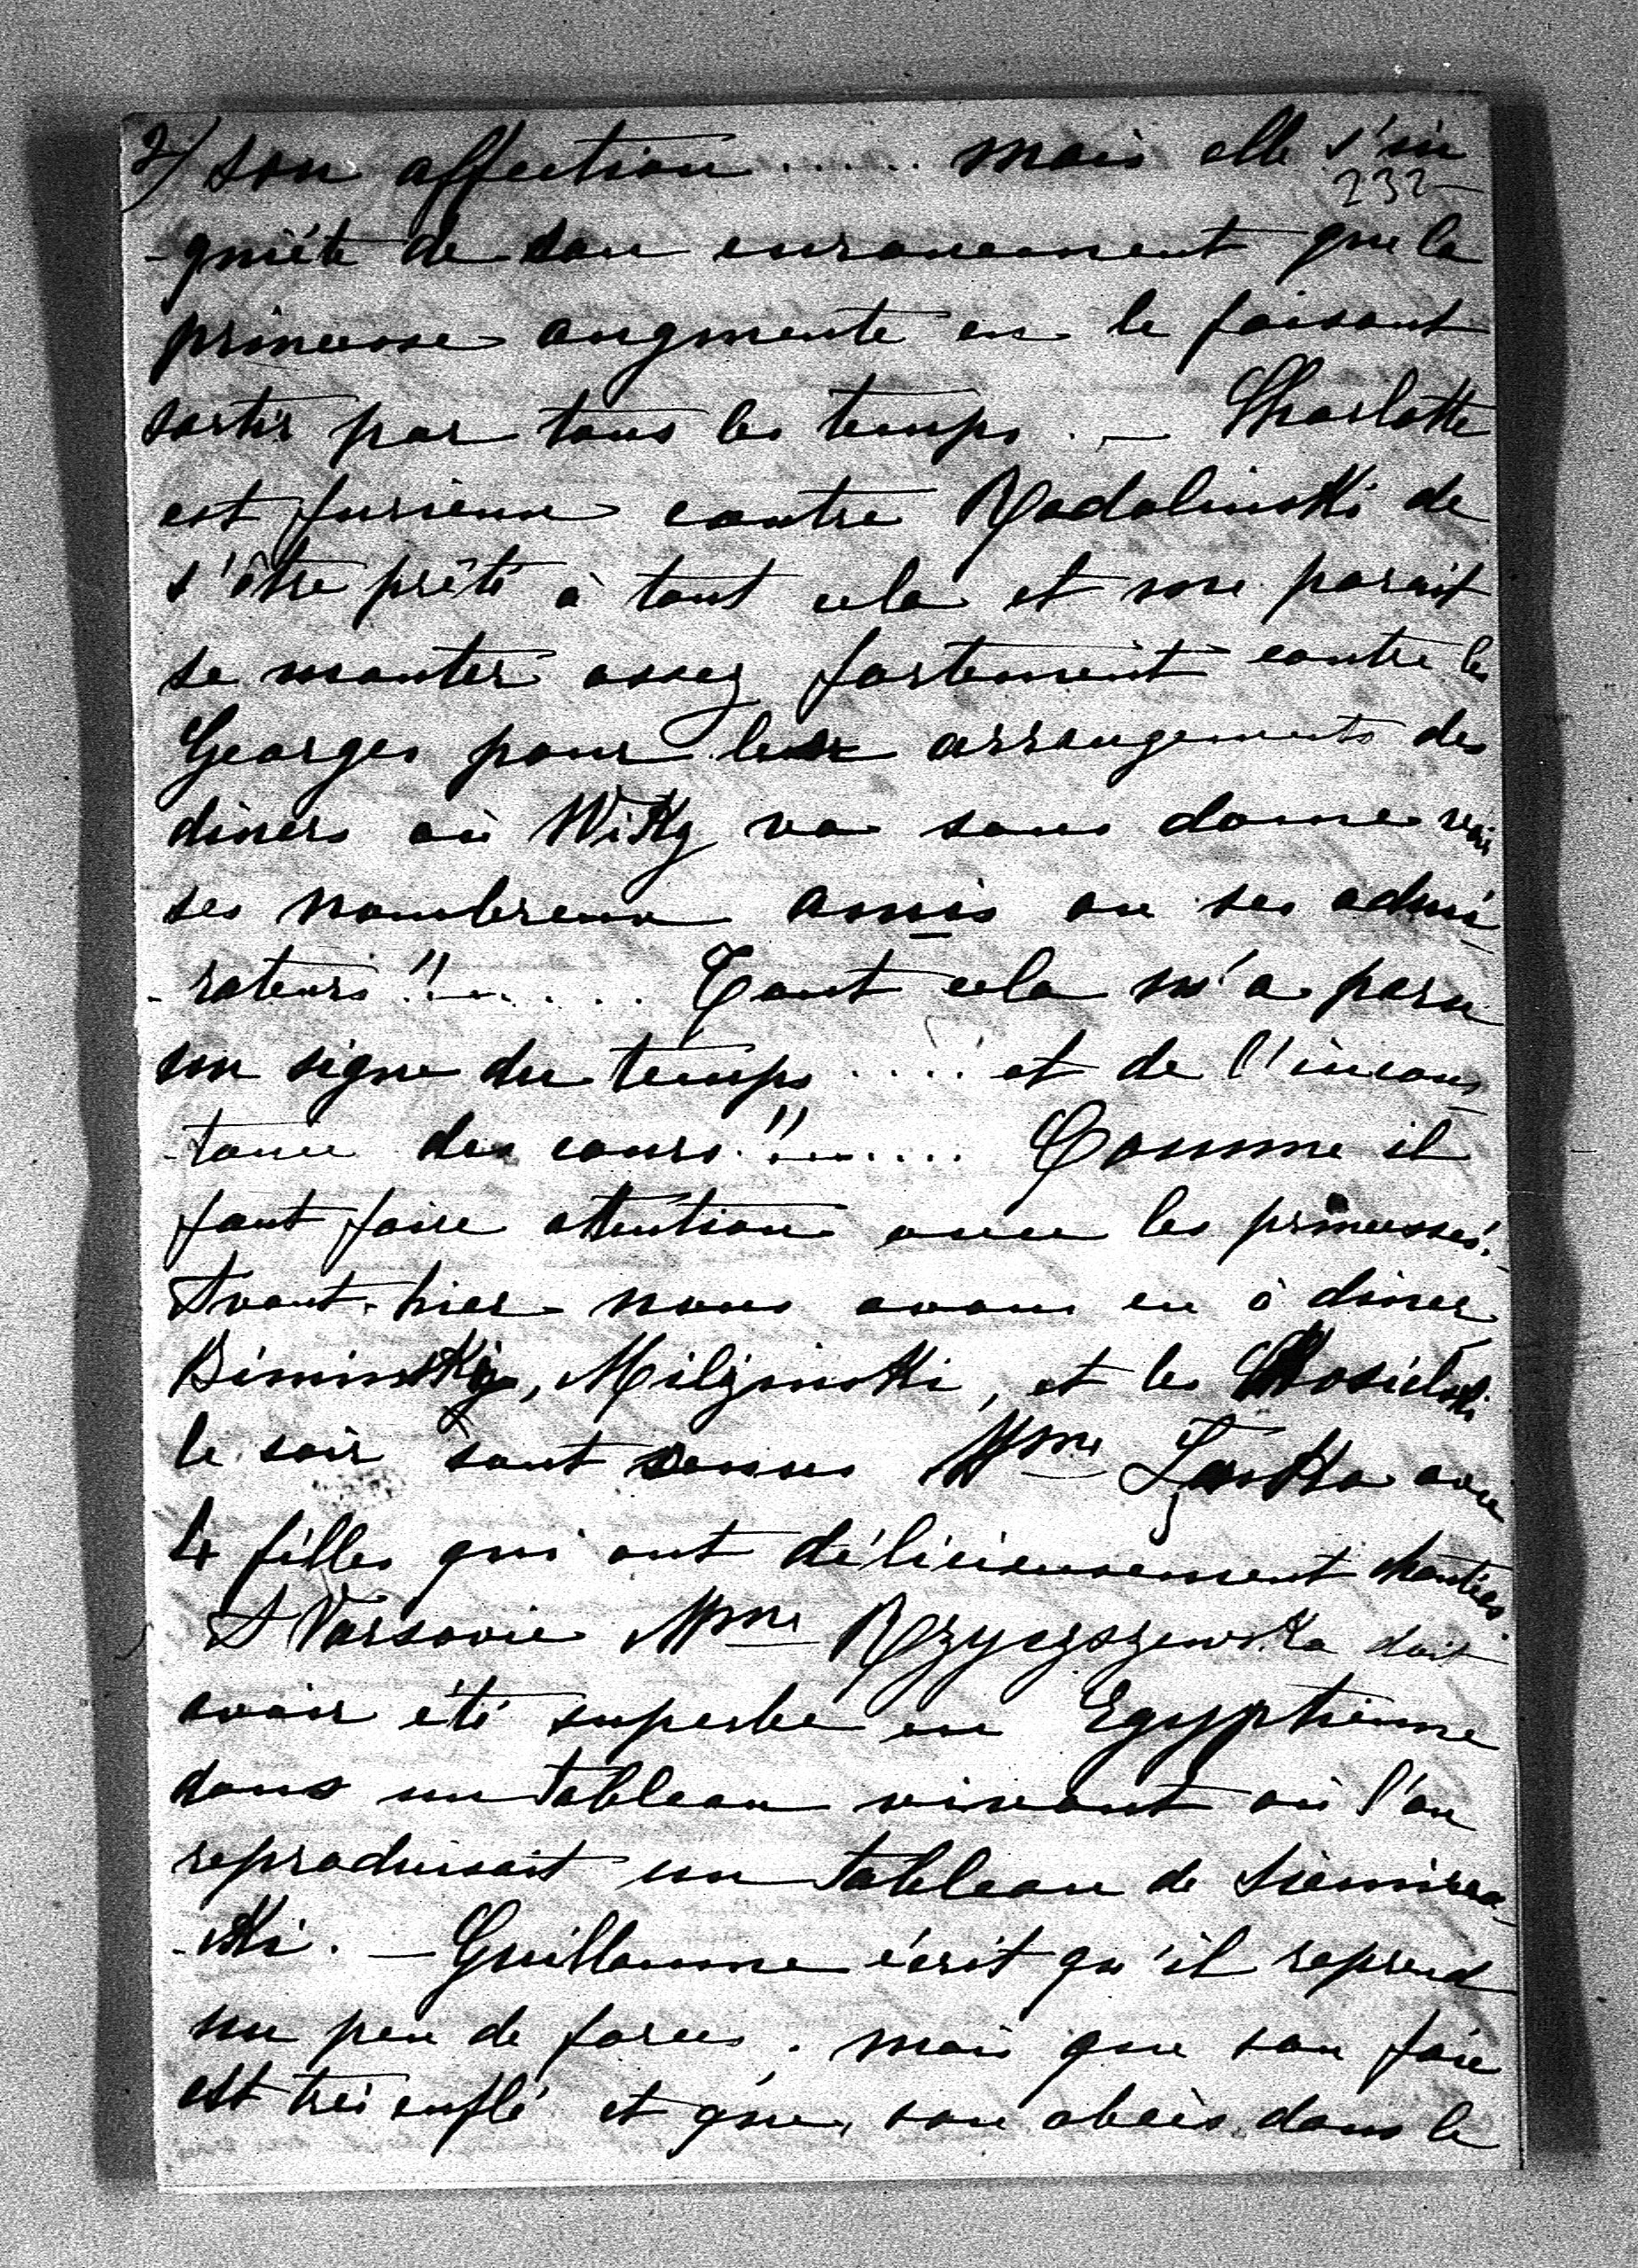 2) son affection ...... mais elle s'in
232
-quiéte de son enrouement que la
princesse augmente en le faisant
sortir par tous les temps. — Charlotte
est furieuse contre Radolinski de
s'être prêté à tout cela et me parait
se monter assez fortement contre les
Georges pour les arrangements des
diners où Wiky va sans doute voir
ses nombreux amis ou ses admi-
-rateurs!! ...... Tout cela m'a paru
un signe du temps .... et de l'incons-
-tance des cours!! ...... Comme il
faut faire attention avec les princesses!
Avant-hier nous avons eu à diner
Biminski, Milzinski, et les Kosielski
le soir sont venus Mme avec
4 filles qui ont délicieusement chantées
A Varsovie Mme Rzyszczewska doit
avoir été superbe en Egyptienne
dans un tableau vivant où l'on
reproduisait un tableau de Siemirad-
-ski. — Guillaume écrit qu'il reprend
un peu de forces, mais que son foie
est très enflé et que, son abcès dans le